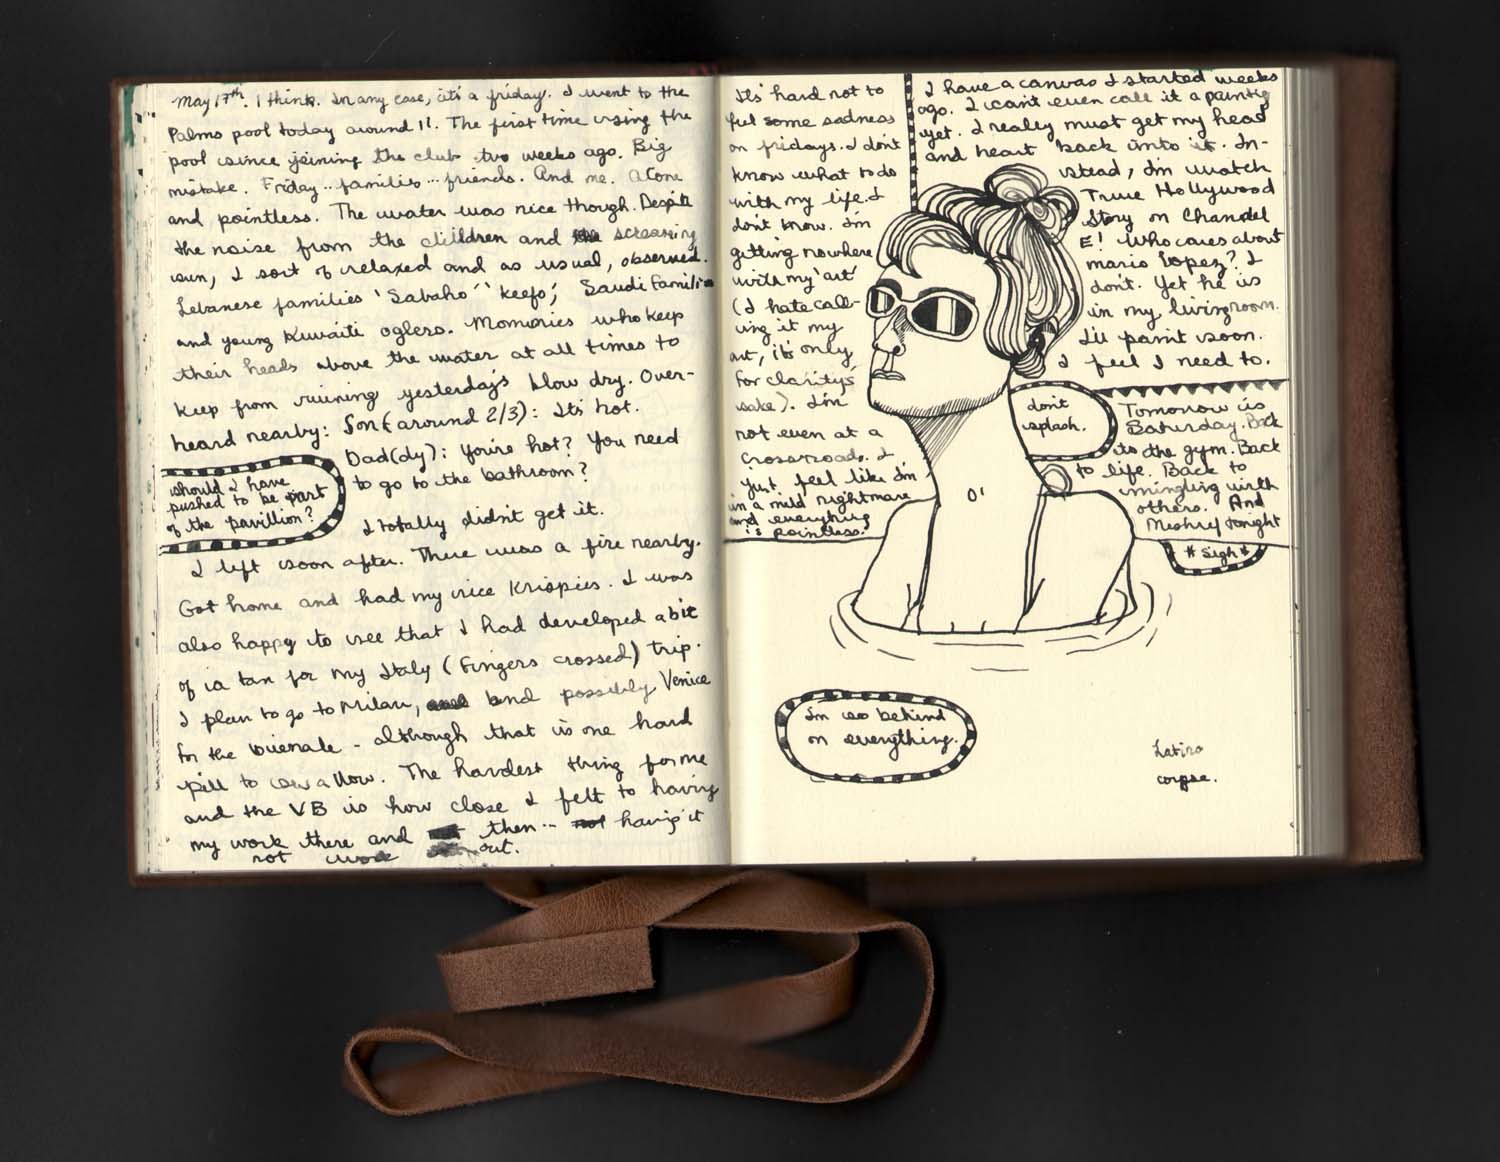 May 17th. I think. In any case, it's a friday. I went to the
Palms pool today around 11. The first time using the
pool since joining the club two weeks ago. Big
mistake. Friday... families... friends. And me. Alone
and pointless. The water was nice though. Despite
the noise from the children and the screaming
sun, I sort of relaxed and as usual, observed.
Lebanese families 'Sabaho'' 'kefo'; Saudi families
and young Kuwaiti oglers. Mommies who keep
their heads above the water at all times to
keep from ruining yesterday's blow dry. Over-
heard nearby: Son (around 2/3): It's hot.
Dad(dy): You're hot? You need
to go to the bathroom?
should I have
pushed to be part
of the pavillion?
I totally didn't get it.
I left soon after. There was a fire nearby.
Got home and had my rice Krispies. I was
also happy to see that I had developed a bit
of a tan for my Italy (fingers crossed) trip.
I plan to go to Milan, and possibly Venice
for the bienale - although that is one hard
pill to swallow. The hardest thing for me
and the VB is how close I felt to having
my work there and then... having it
not work out.
It's hard not to
feel some sadness
on fridays. I don't
know what to do
with my life. I
don't know. I'm
getting nowhere
with my 'art'
(I hate call-
ing it my
art, it's only
for clarity's
sake). I'm
not even at a
crossroads. I
just feel like I'm
in a mild nightmare
and everything
is pointless.
I have a canvas I started weeks
ago. I can't even call it a paintig
yet. I really must get my head
and heart back into it. In-
stead, I'm watch
True Hollywood
Story on Channel
E! Who cares about
mario Lopez? I
don't. Yet he is
in my livingroom.
I'll paint soon.
I feel I need to.
don't
splash.
Tomorrow is
Saturday. Back
to the gym. Back
to life. Back to
mingling with
others. And
Mishref tonight
* Sigh *
I'm so behind
on everything.
Latino
corpse.